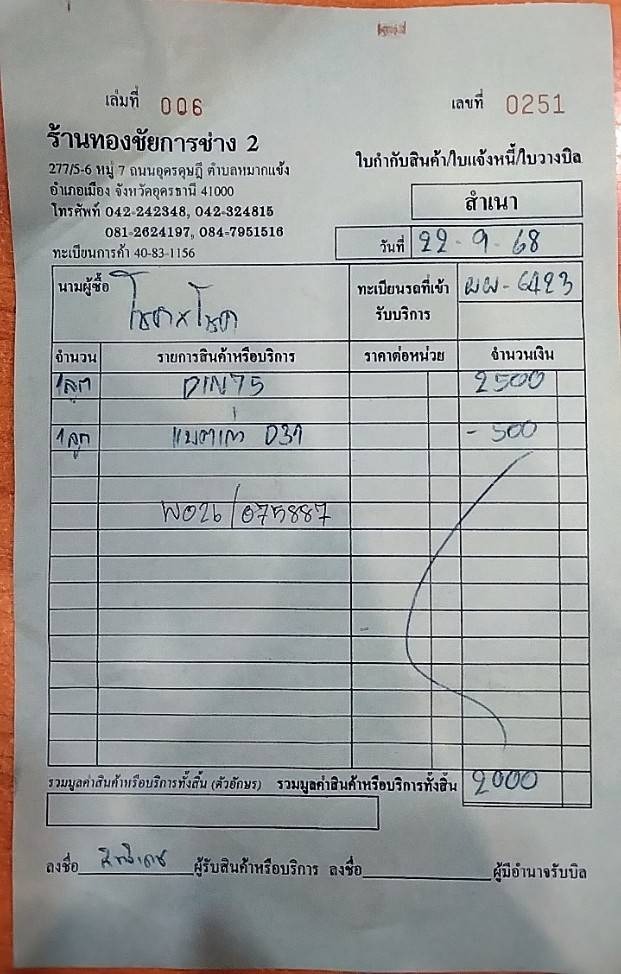 เล่มที่ 006 เลขที่ 0251
ร้านทองชัยการช่าง 2
277/5-6 หมู่ 7 ถนนอุดรดุษฎี ตำบลหมากแข้ง
อำเภอเมือง จังหวัดอุดรธานี 41000
โทรศัพท์ 042-242348, 042-324815
081-2624197, 084-7951516
ทะเบียนการค้า 40-83-1156
ใบกำกับสินค้า/ใบแจ้งหนี้/ใบวางบิล
สำเนา
วันที่ 22-9-68
นามผู้ซื้อ โชค x โชค
ทะเบียนรถที่เข้ารับบริการ ผผ-6423
จำนวน รายการสินค้าหรือบริการ ราคาต่อหน่วย จำนวนเงิน
1ลูก DIN75 2500
1ลูก แบตเก่า D31 - 500
W026/075887
รวมมูลค่าสินค้าหรือบริการทั้งสิ้น (ตัวอักษร) รวมมูลค่าสินค้าหรือบริการทั้งสิ้น 2000
ลงชื่อ ผู้รับสินค้าหรือบริการ ลงชื่อ ผู้มีอำนาจรับบิล